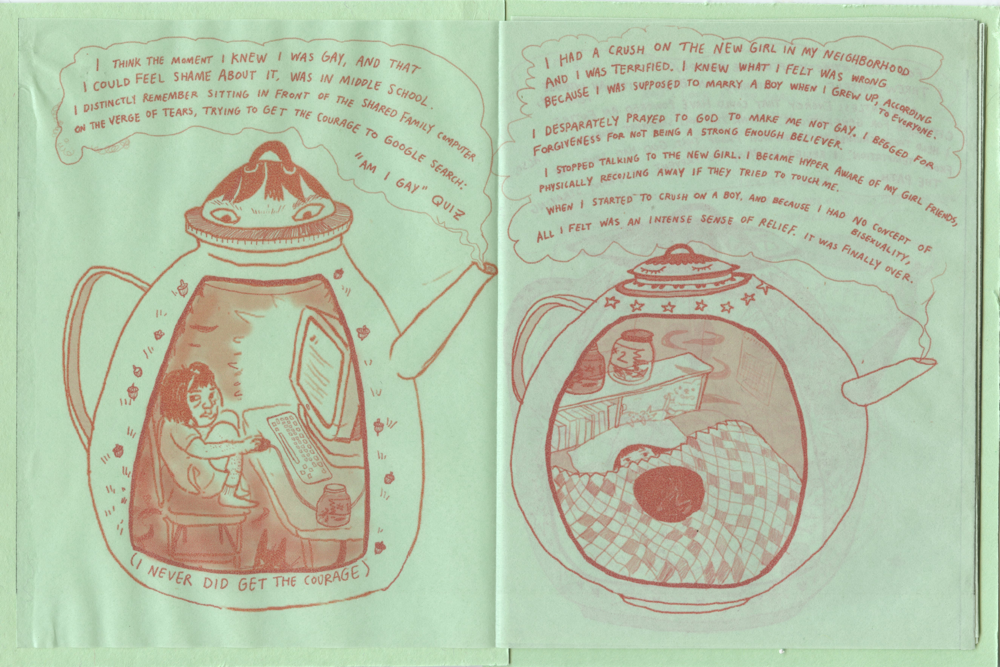 I THINK THE MOMENT I KNEW I WAS GAY, AND THAT
I COULD FEEL SHAME ABOUT IT, WAS IN MIDDLE SCHOOL.
I DISTINCTLY REMEMBER SITTING IN FRONT OF THE SHARED FAMILY COMPUTER
ON THE VERGE OF TEARS, TRYING TO GET THE COURAGE TO GOOGLE SEARCH:
"AM I GAY" QUIZ
(I NEVER DID GET THE COURAGE)
I HAD A CRUSH ON THE NEW GIRL IN MY NEIGHBORHOOD
AND I WAS TERRIFIED. I KNEW WHAT I FELT WAS WRONG
BECAUSE I WAS SUPPOSED TO MARRY A BOY WHEN I GREW UP, ACCORDING
TO EVERYONE.
I DESPARATELY PRAYED TO GOD TO MAKE ME NOT GAY. I BEGGED FOR
FORGIVENESS FOR NOT BEING A STRONG ENOUGH BELIEVER.
I STOPPED TALKING TO THE NEW GIRL. I BECAME HYPER AWARE OF MY GIRL FRIENDS,
PHYSICALLY RECOILING AWAY IF THEY TRIED TO TOUCH ME.
WHEN I STARTED TO CRUSH ON A BOY, AND BECAUSE I HAD NO CONCEPT OF
BISEXUALITY,
ALL I FELT WAS AN INTENSE SENSE OF RELIEF. IT WAS FINALLY OVER.